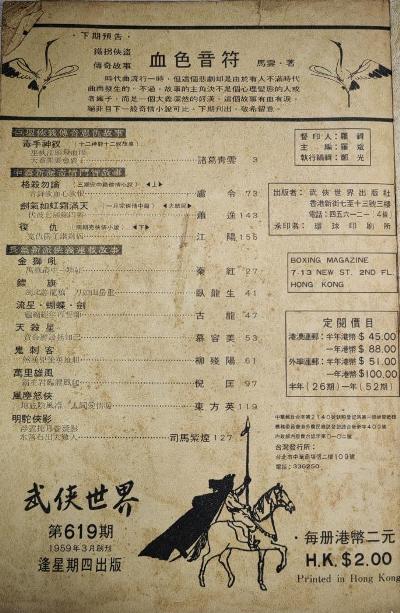 ·下期預告·
鐵拐俠盜
傳奇故事
血色音符
馬雲·著
時代曲流行一時，但這個悲劇却是由於有人不滿時代
曲而發生的，不過，故事的主角決不是個心理變態的人或
者瘋子，而是一個大義凜然的好漢，這個故事有血有淚，
絕非目下一般奇情小說可比，下期刊出，敬希留意。
毒手神釵
諸葛青雲 3
中篇新派奇情鬥智故事
格殺勿論
◀上▶
盧令 73
劍氣如虹霜滿天
蕭逸 143
復仇
◀下▶
江陽 155
長篇新派俠義連載故事
金獅吼
秦紅 27
鏢旗
臥龍生 41
流星·蝴蝶·劍
古龍 47
天殺星
慕容美 53
鬼刺客
柳殘陽 61
萬里雄風
倪匡 97
風塵怒俠
東方英 119
明駝俠影
水落石出大驚人
司馬紫煙 127
督印人：羅輯
主編：羅斌
執行編輯：鄭光
出版者：武俠世界出版社
香港新街七至十三號三樓
電話：四五六一二一(4線)
承印者：環球印刷所
BOXING MAGAZINE
7-13 NEW ST. 2ND FL.
HONG KONG
定閱價目
港澳連郵：半年港幣 $ 45.00
一年港幣 $ 88.00
外埠連郵：半年港幣 $ 51.00
一年港幣 $100.00
半年（26期）一年（52期）
台灣發行所：
電話：336250
武俠世界
第619期
1959年3月創刊
逢星期四出版
·每册港幣二元
H.K. $2.00
Printed in Hong Kong